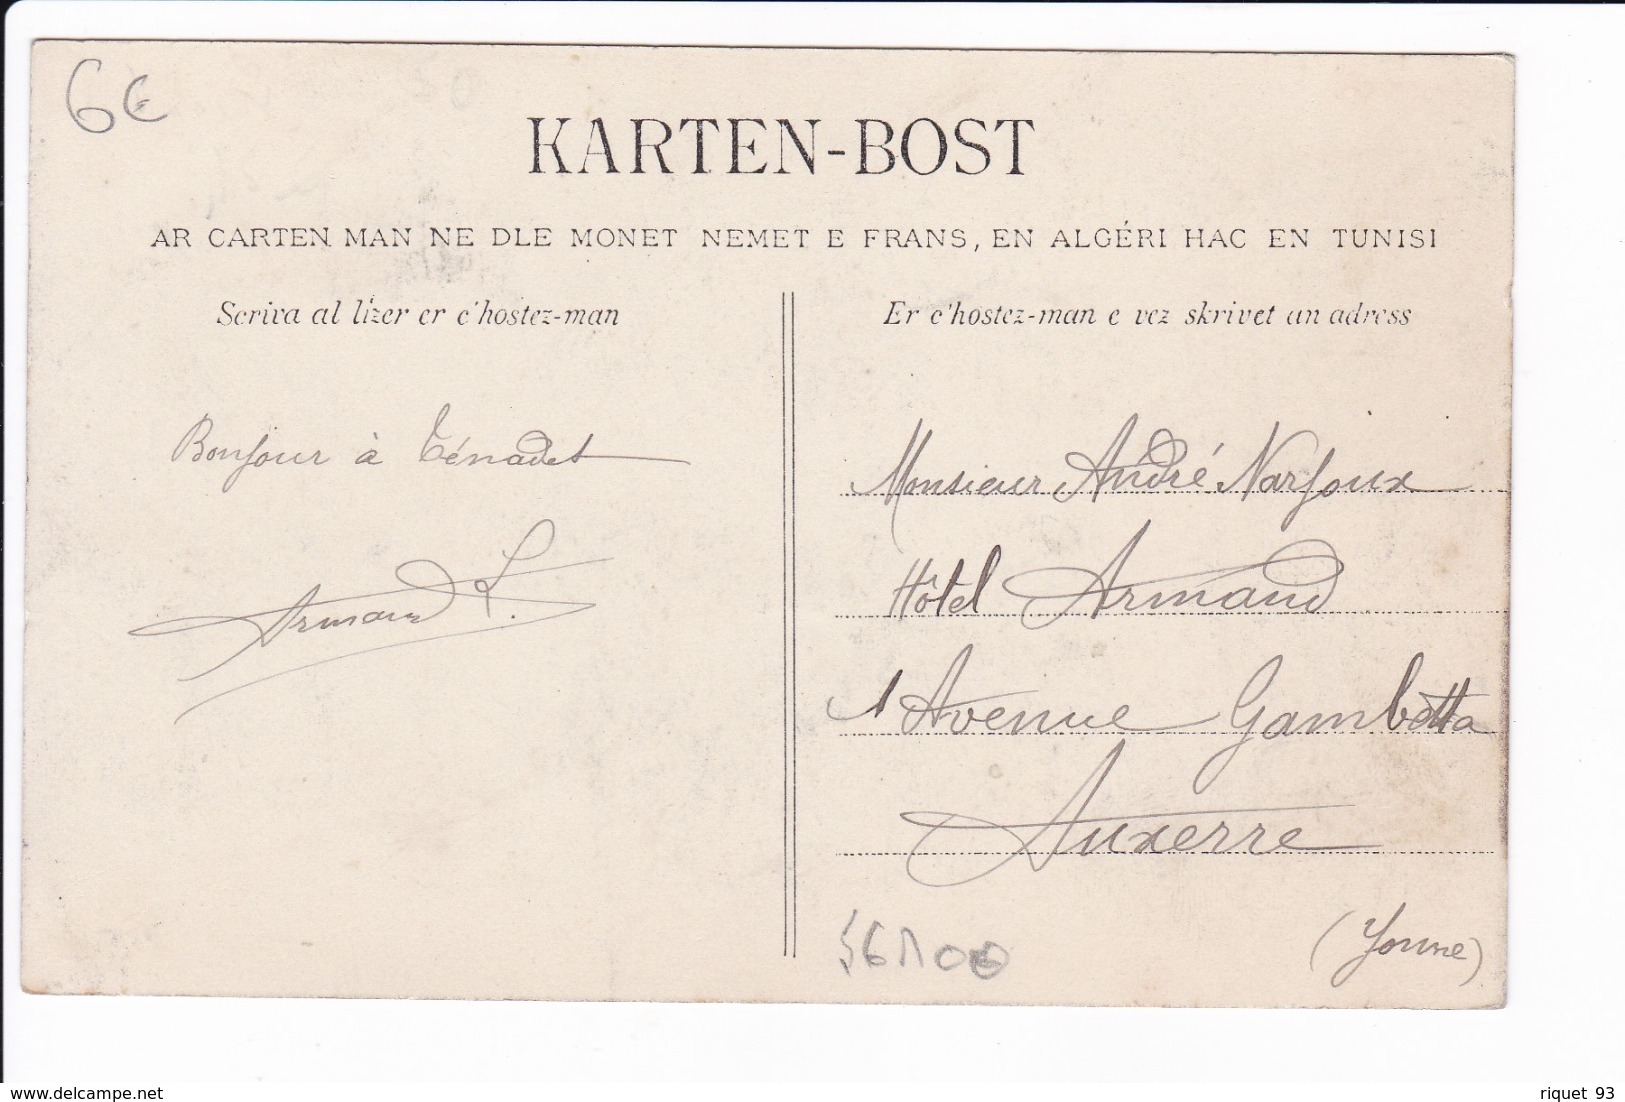 6€
KARTEN-BOST
AR CARTEN MAN NE DLE MONET NEMET E FRANS, EN ALGÉRI HAC EN TUNISI
Scriva al lizer er c'hostez-man
Er c'hostez-man e vez skrivet an adress
Bonjour à Ténadet
Armand L.
Monsieur André Narjoux
Hôtel Armand
1 Avenue Gambetta
Auxerre
(Yonne)
56100
delcampe.net
riquet 93